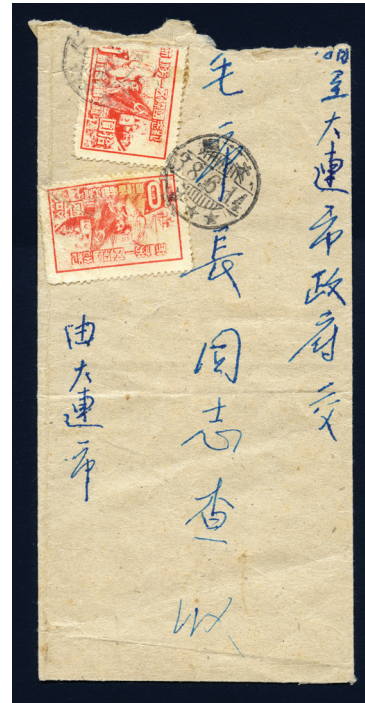 呈大連市政府交
毛市長同志查收
由大連市
10